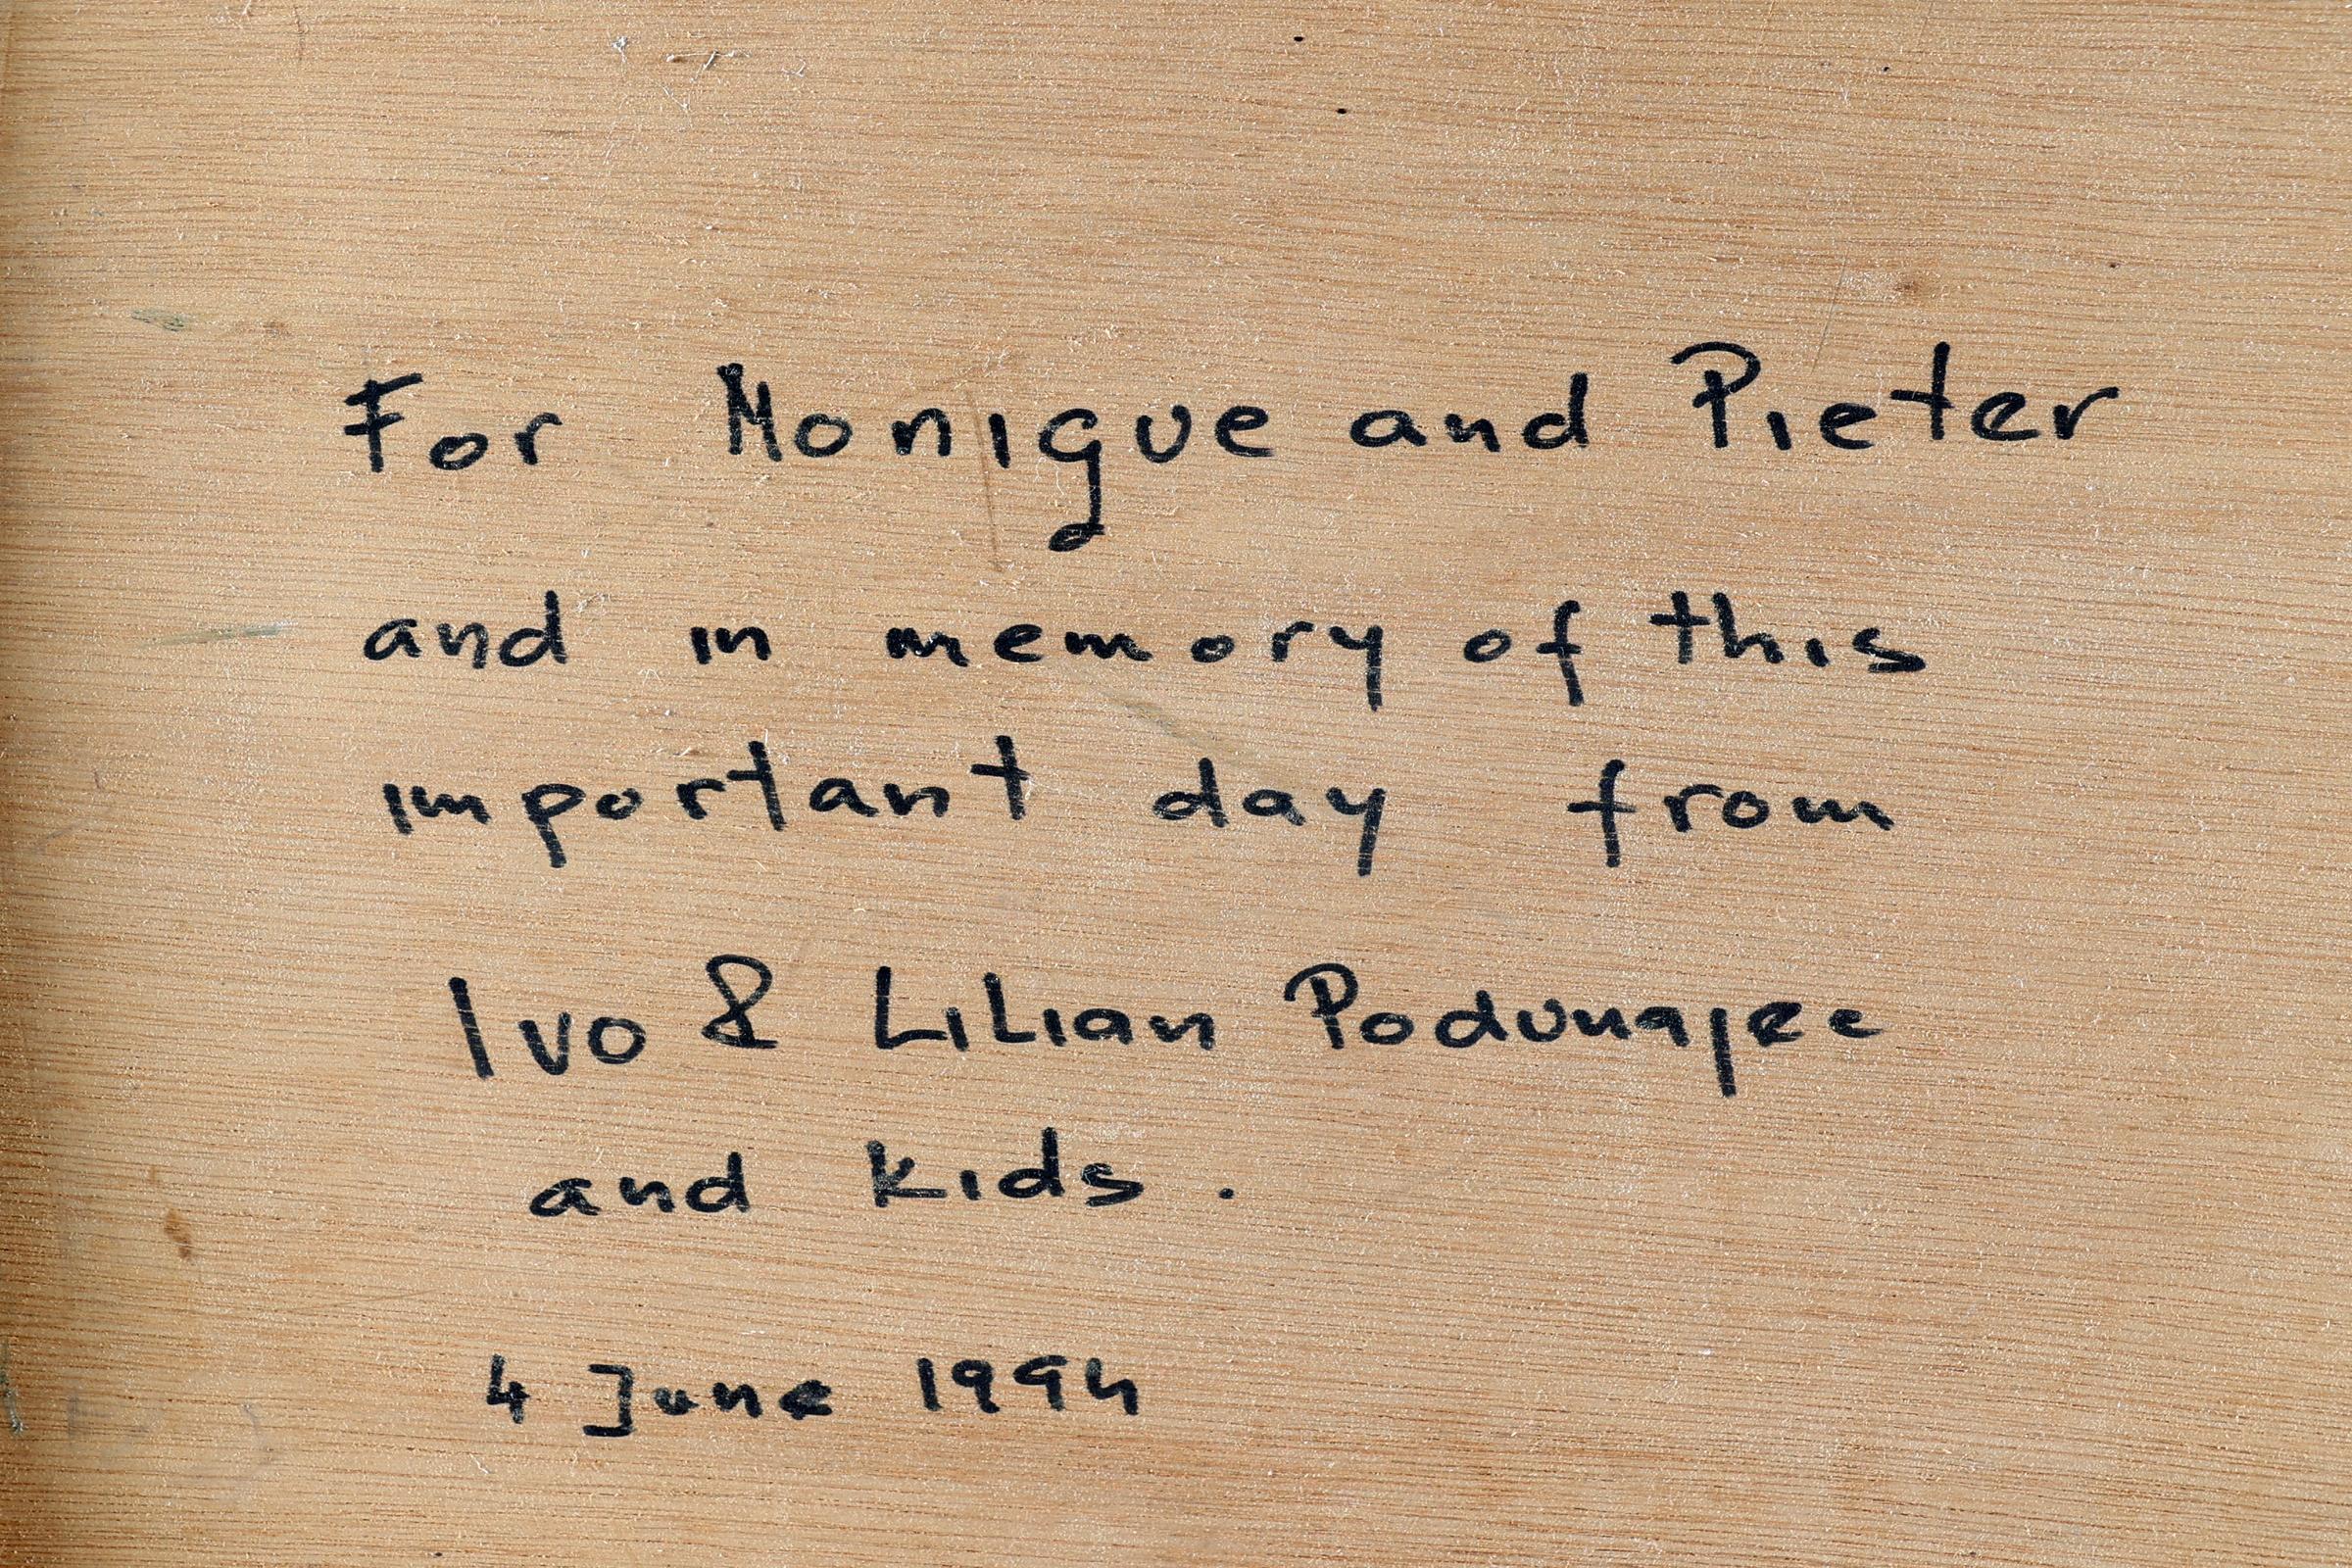 For Monique and Pieter
and in memory of this
important day from
Ivo & Lilian Podunajec
and kids.
4 June 1994